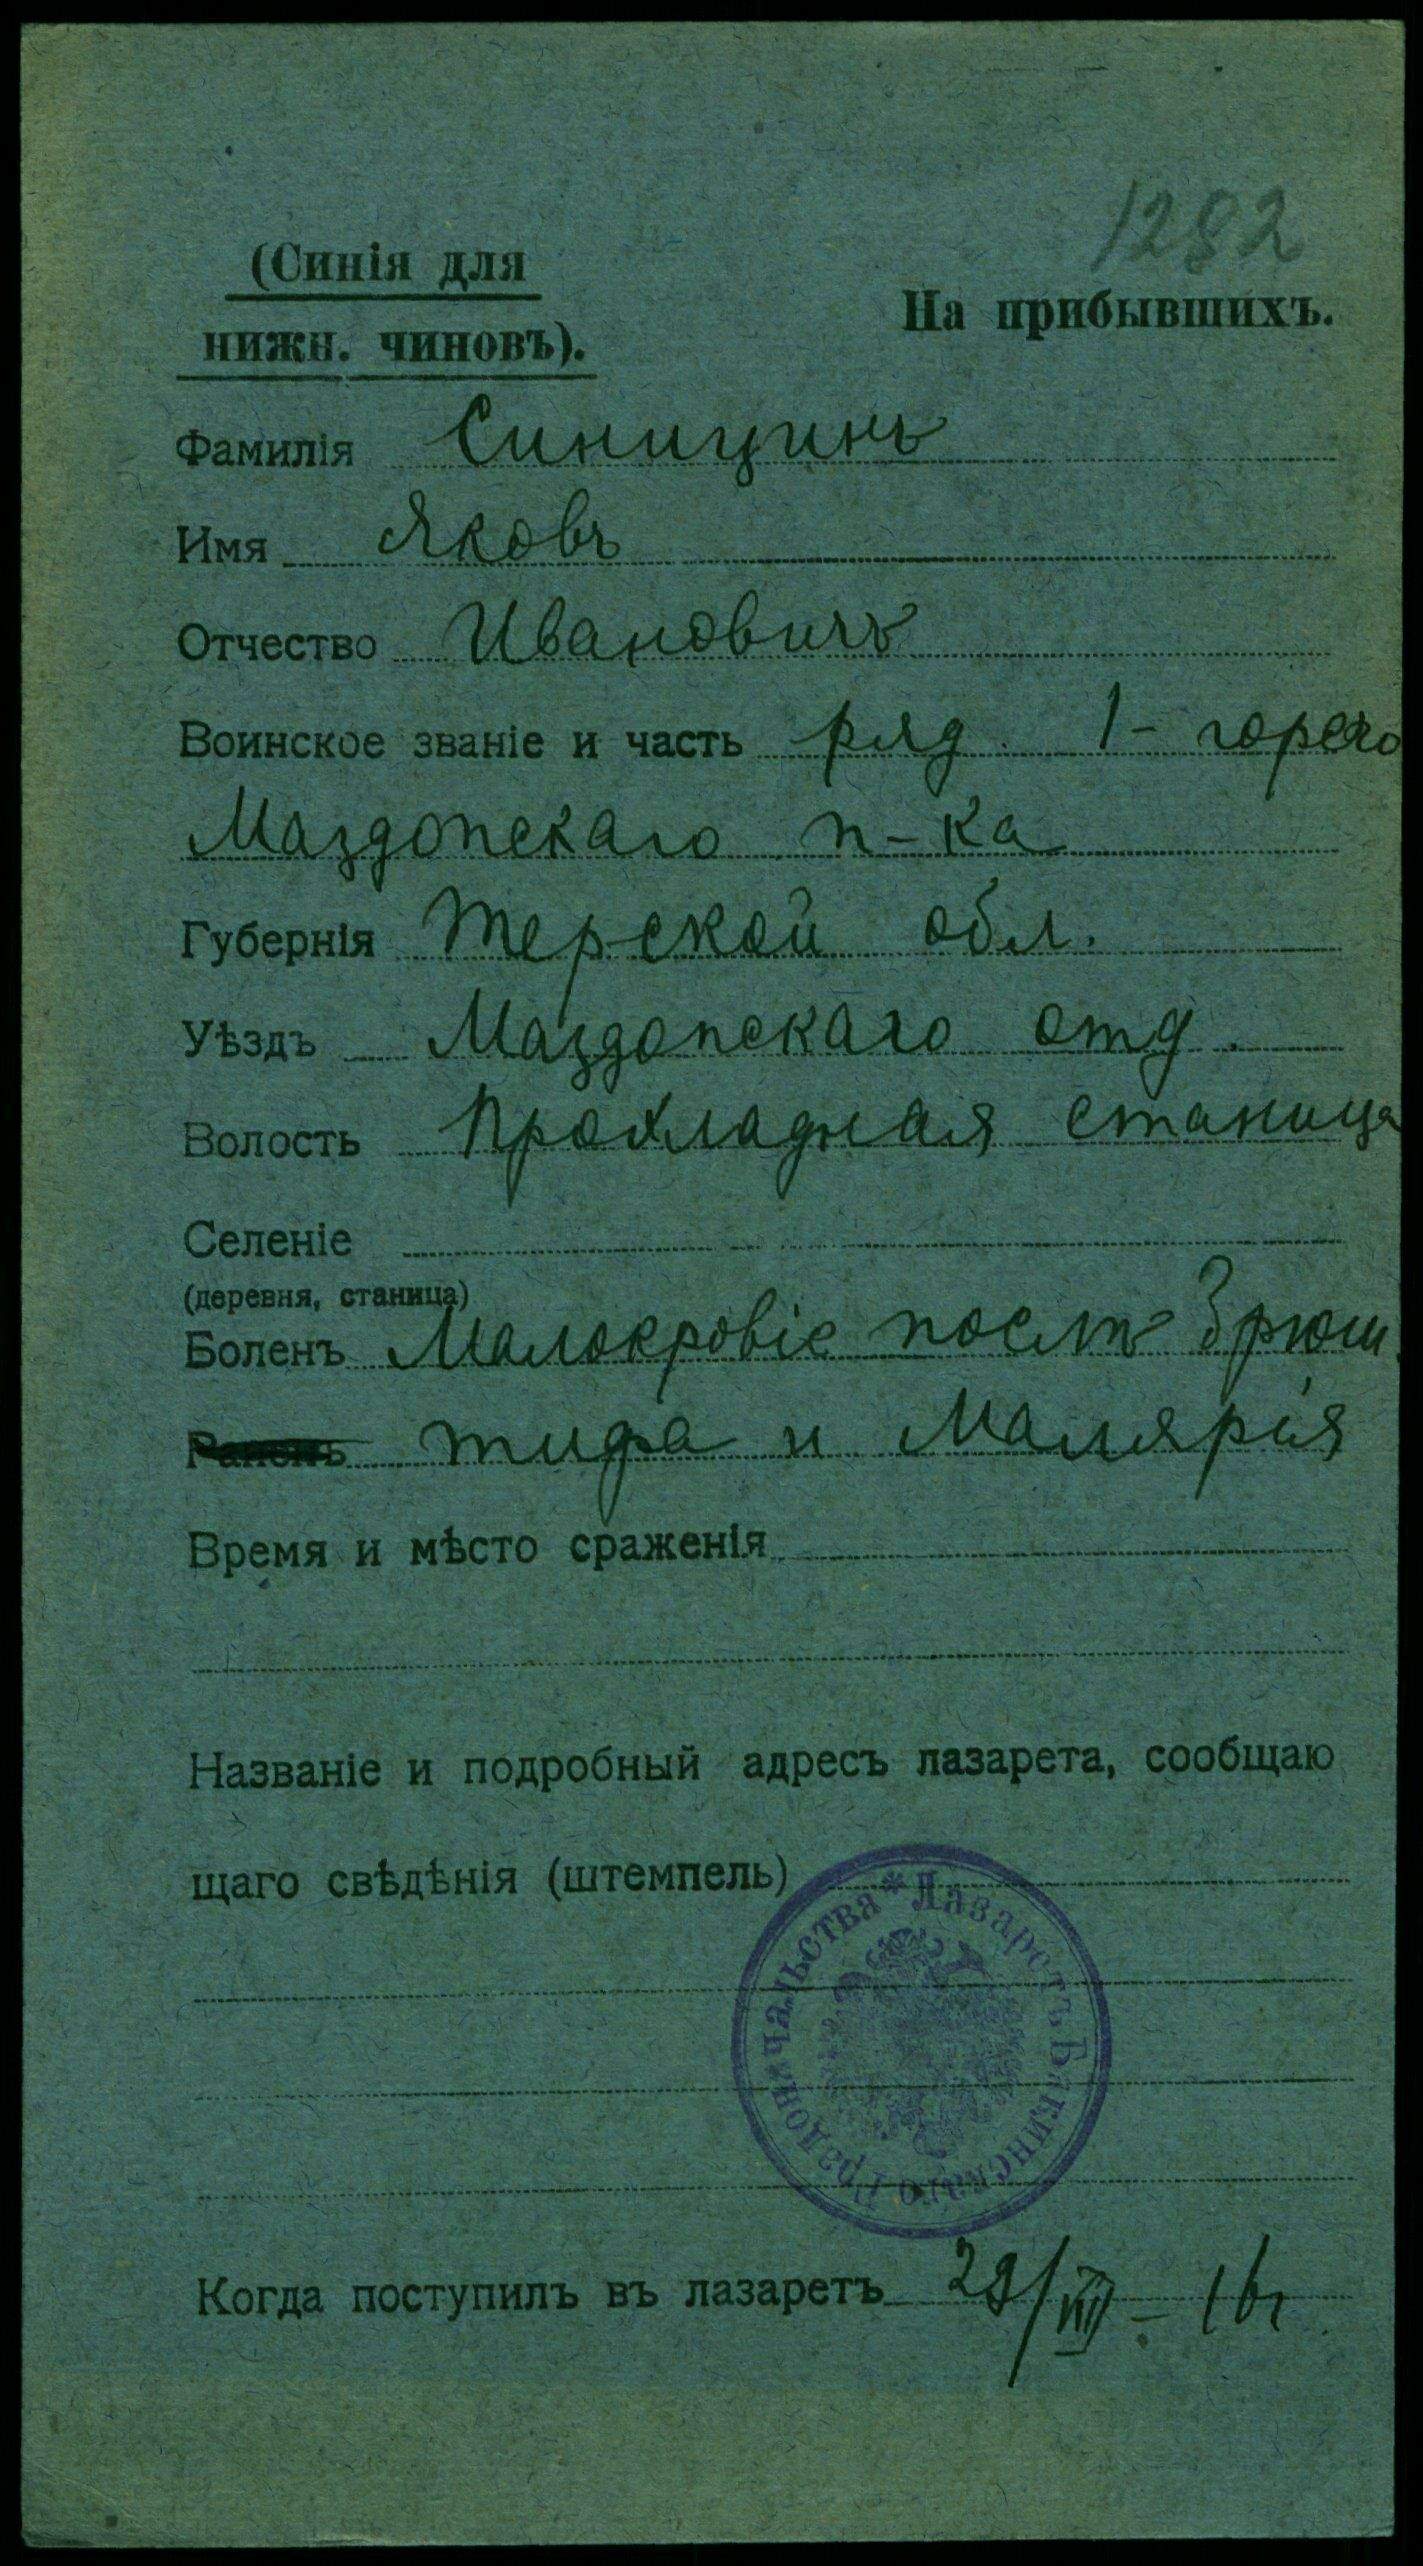 1282
(Синія для
нижн. чиновъ).
На прибывшихъ.
Фамилія Синицинъ
Имя Яковъ
Отчество Ивановичъ
Воинское званіе и часть ряд. 1-горско
Маздопскаго п-ка
Губернія Терской обл.
Уѣздъ Маздопскаго отд.
Волость Прохладная станица
Селеніе
(деревня, станица)
Боленъ Малокровіе послѣ Брюш.
Раненъ тифа и Малярія
Время и мѣсто сраженія
Названіе и подробный адресъ лазарета, сообщаю
щаго свѣдѣнія (штемпель)
* Лазаретъ Бакинскаго Градоначальства
Когда поступилъ въ лазаретъ 29/III-16г